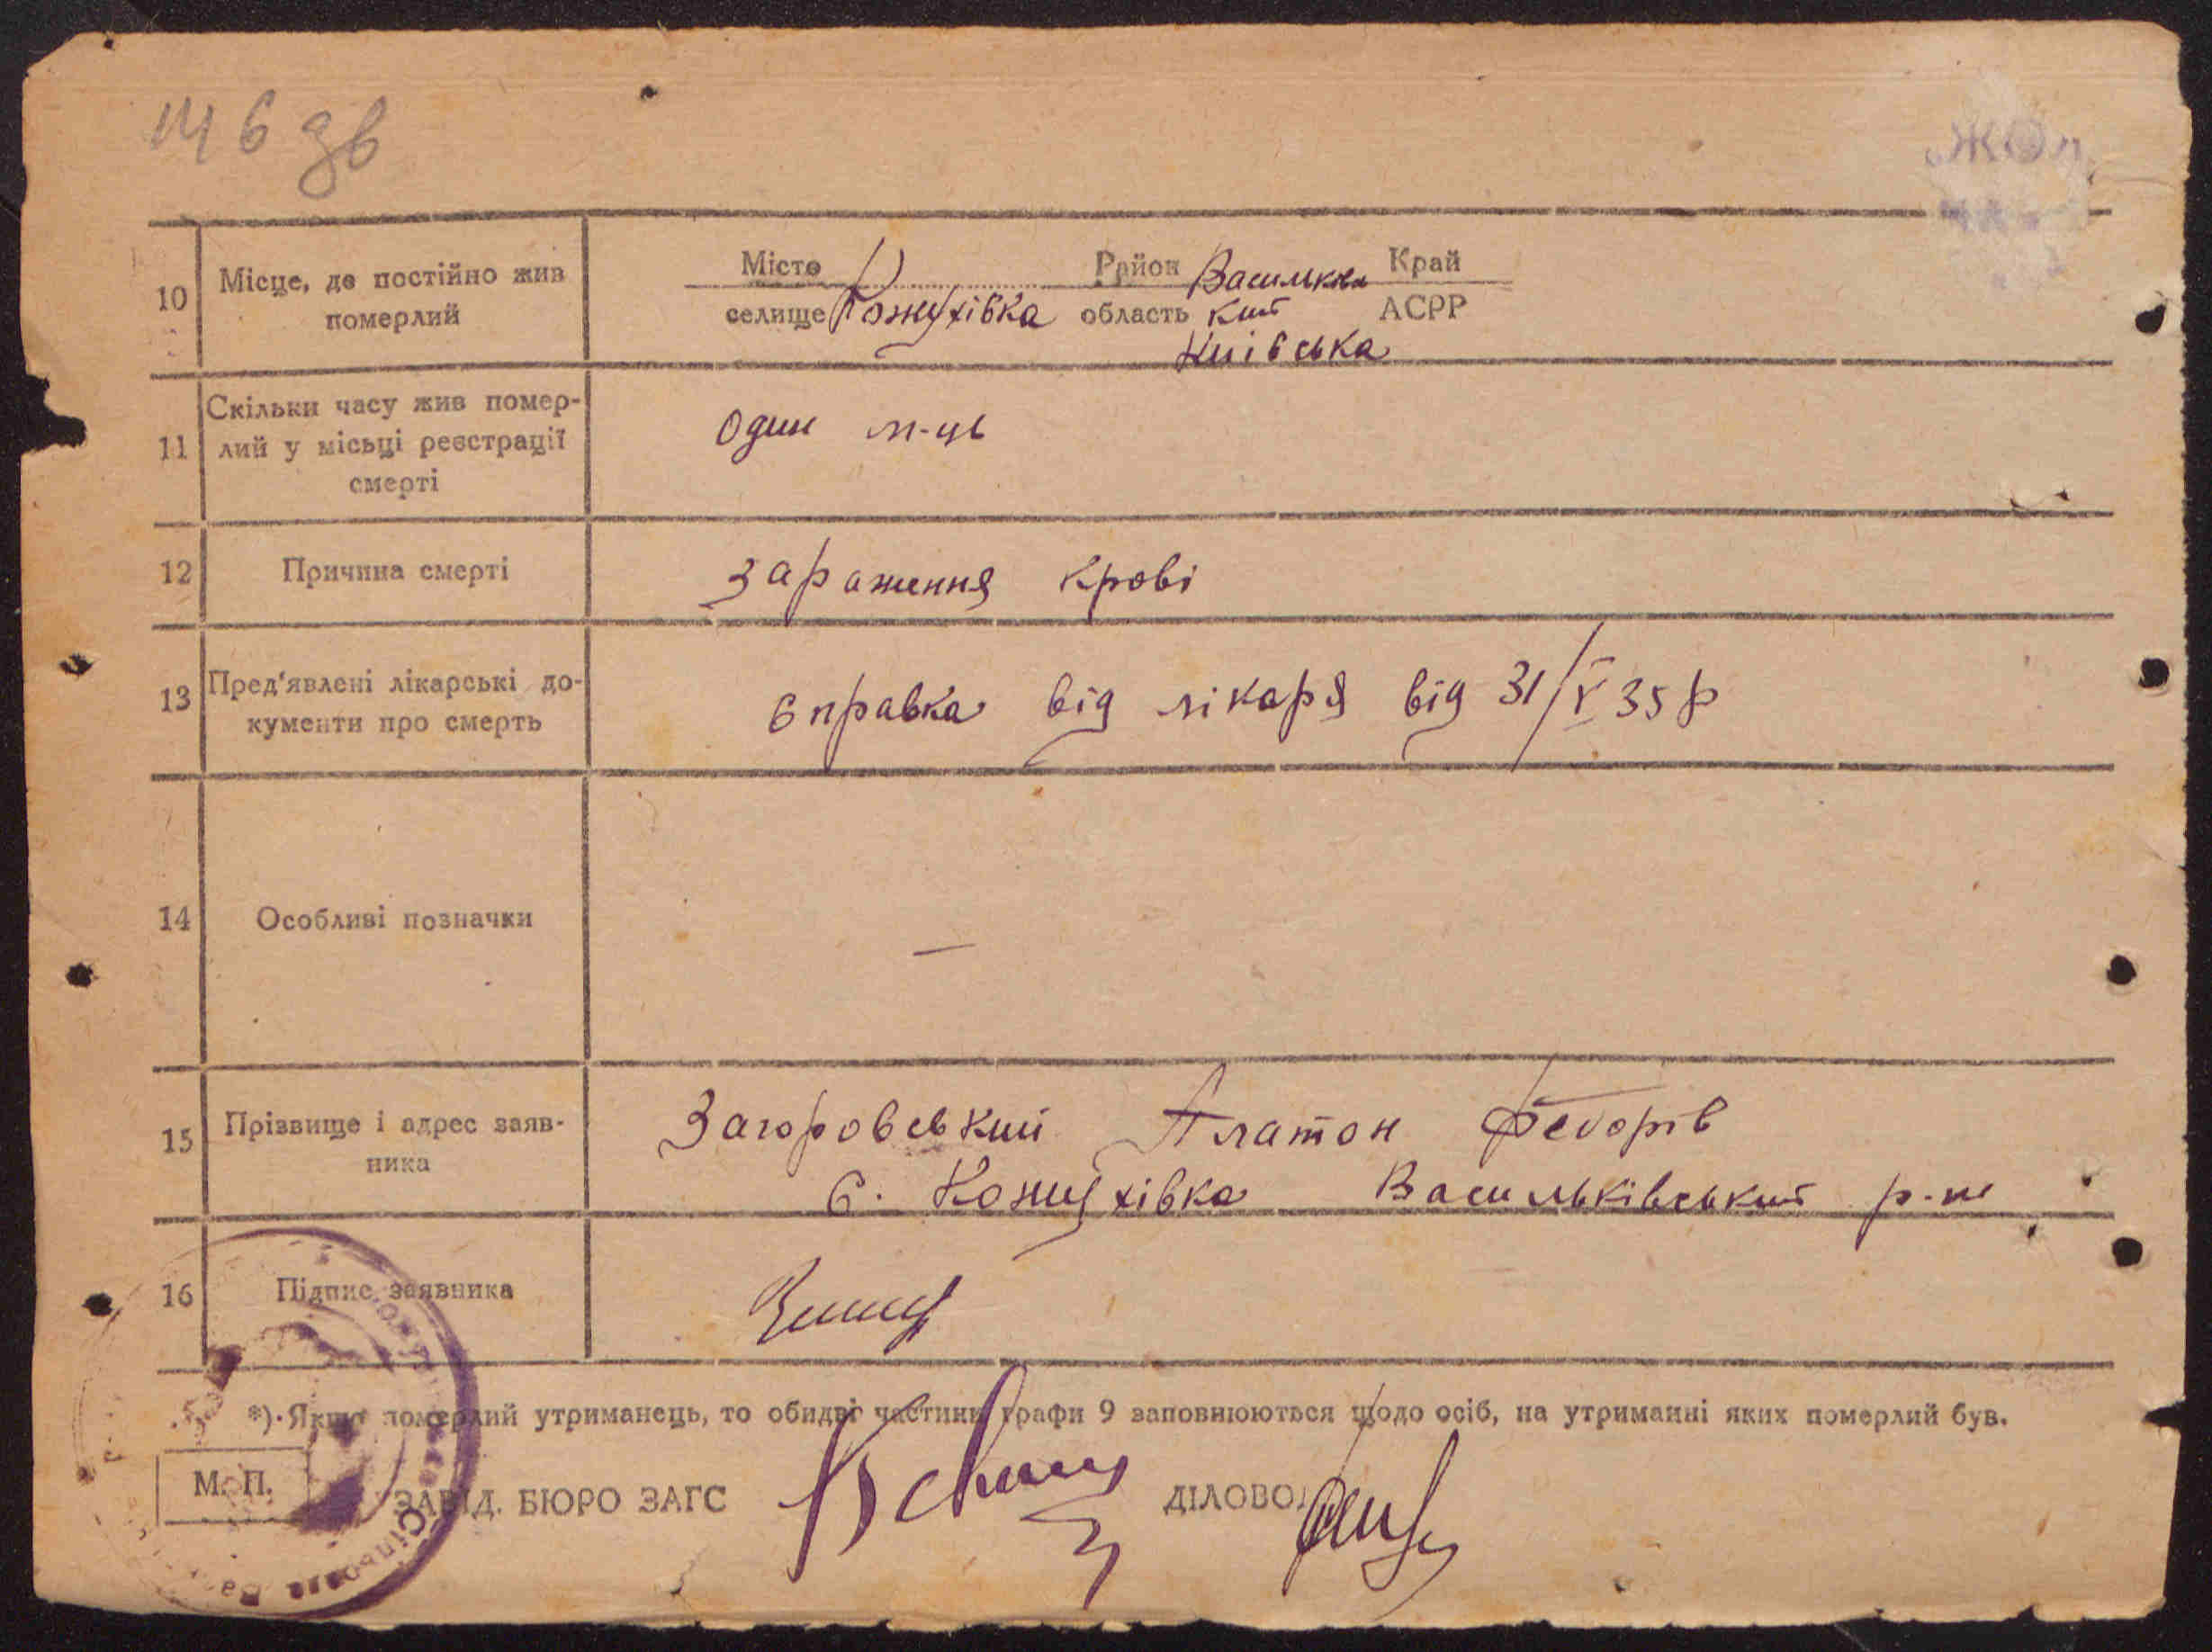 10 Місце, де постійно жив померлий
Місто Район Васильків Край
селище Кожухівка область кий АСРР
Київська
11 Скільки часу жив помер-
лий у місьці реєстрації
смерті
Один м-ць
12 Причина смерті
Зараження крові
13 Пред'явлені лікарські до-
кументи про смерть
Справка від лікаря від 31/V 35 р
14 Особливі позначки
—
15 Прізвище і адрес заяв-
ника
Загоровський Платон Федорів
С. Кожухівка Васильківський р-н
16 Підпис заявника
*) Якщо померлий утриманець, то обидві частини графи 9 заповнюються щодо осіб, на утриманні яких померлий був.
М. П.
ЗАВІД. БЮРО ЗАГС ДІЛОВОД